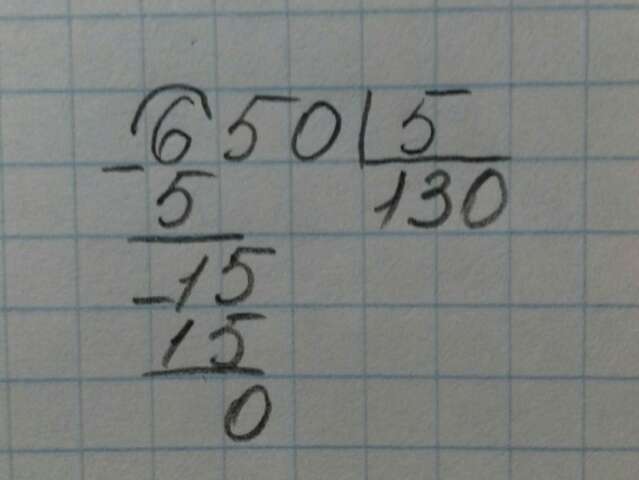 650 5
130
-5
-15
15
0